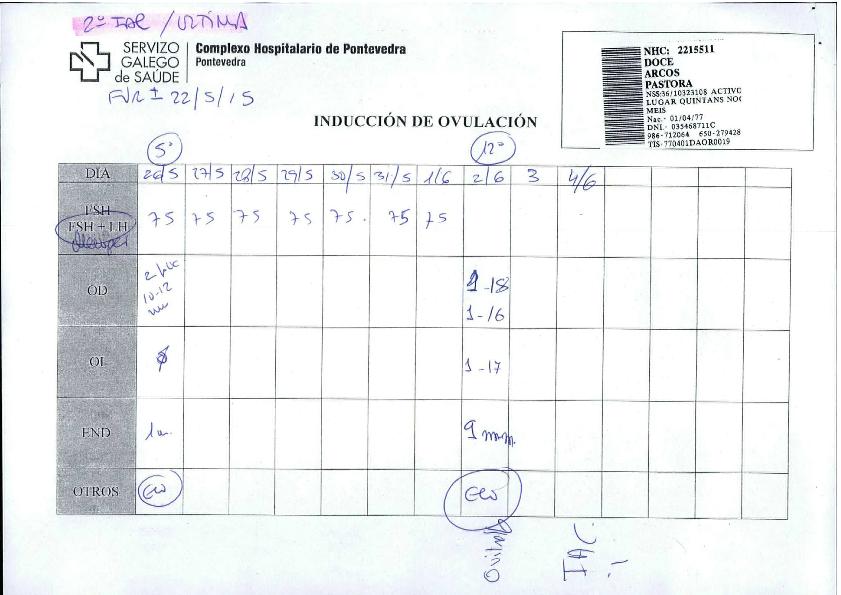 2º IAC / ÚLTIMA
SERVIZO
GALEGO
de SAÚDE
Complexo Hospitalario de Pontevedra
Pontevedra
FUR ± 22/5/15
NHC: 2215511
DOCE
ARCOS
PASTORA
NSS:36/10323108 ACTIVO
LUGAR QUINTANS NOG
MEIS
Nac.- 01/04/77
DNI.- 035468711C
986-712064 650-279428
TIS-770401DAOR0019
INDUCCIÓN DE OVULACIÓN
5º 12º
DIA 26/5 27/5 28/5 29/5 30/5 31/5 1/6 2/6 3 4/6
FSH
FSH + LH 75 75 75 75 75. 75 75
OD
10-12
1-18
1-16
OI ϕ 1-17
END 9 mm.
OTROS Eco Eco
Ovitrelle
IAC